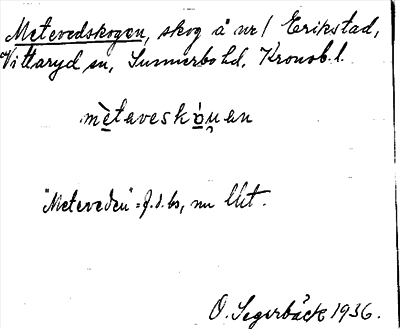 Metevedskogen, skog å nr 1 Erikstad,
Vittaryd sn, Sunnerbo hd, Kronob. l.
mètaveskò̱u̯an
"Meteveden" = f.d. bs, nu
O. Segerbäck 1936.